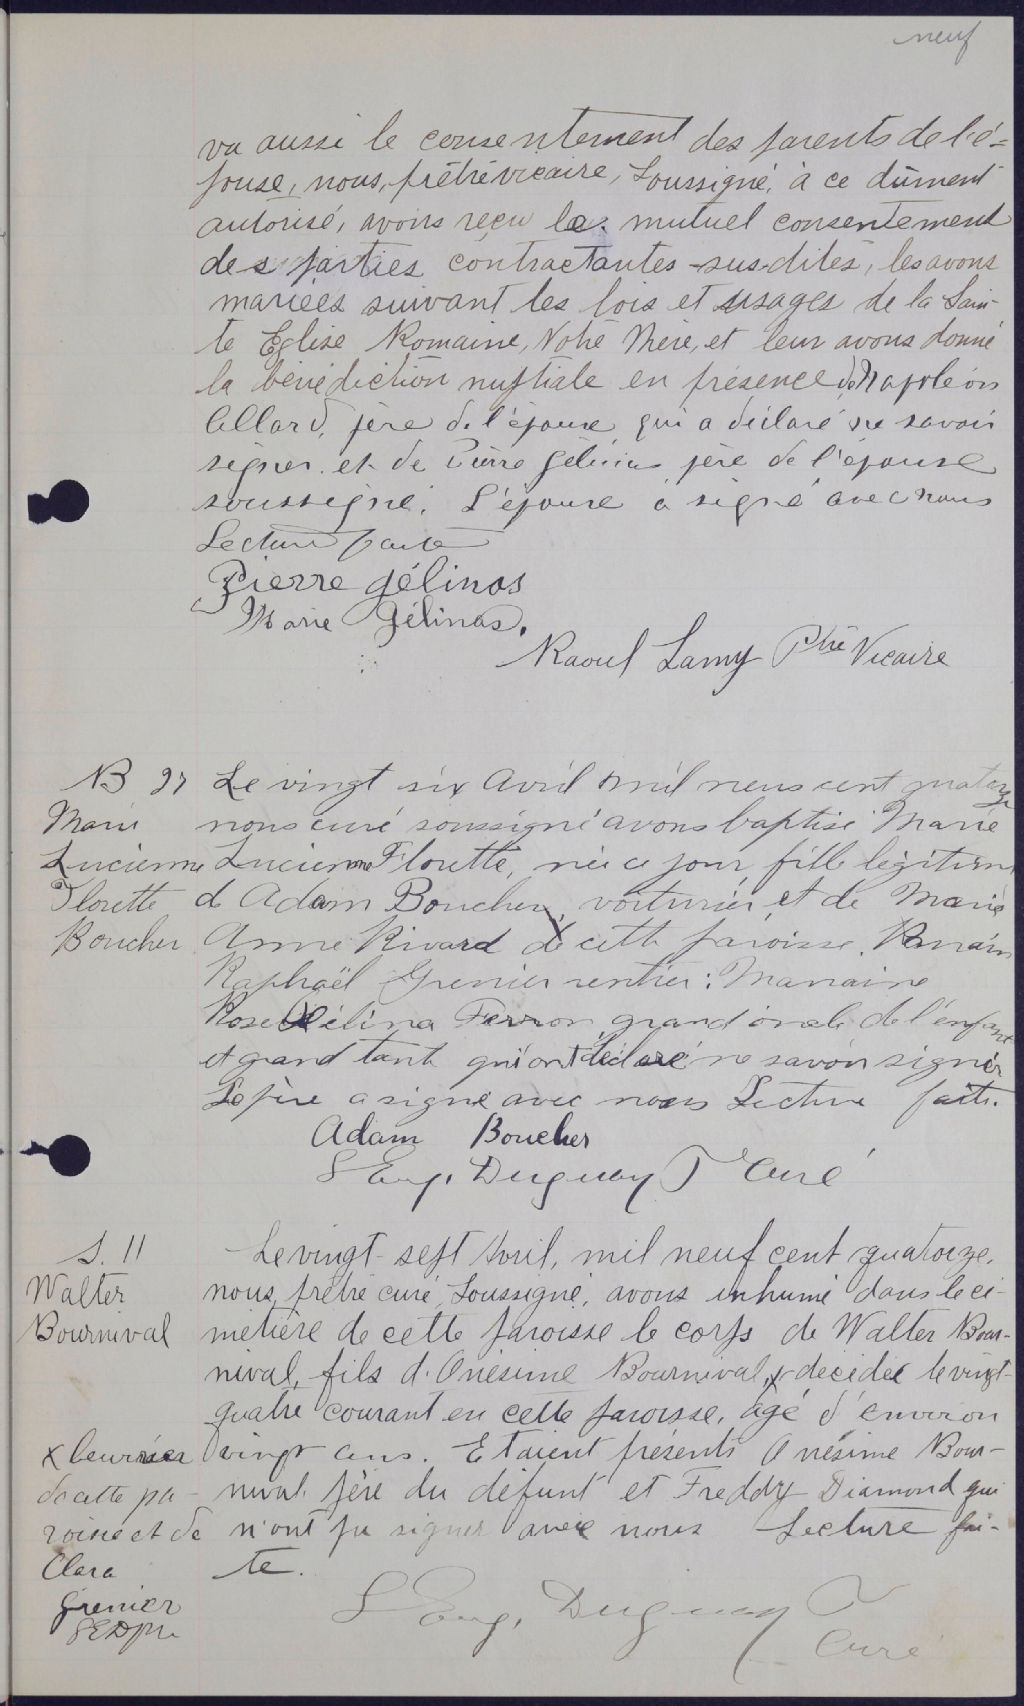 neuf
vu aussi le consentement des parents de l'é-
pouse, nous, prêtre vicaire, soussigné, à ce dûment
autorisé, avons reçu le mutuel consentement
des parties contractantes sus-dites, les avons
mariées suivant les lois et usages de la Sain-
te Eglise Romaine, Notre Mère, et leur avons donné
la bénédiction nuptiale en présence de Napoléon
Allard, père de l'époux qui a déclaré ne savoir
signer et de Pierre Gélinas père de l'épouse
soussigné. L'épouse a signé avec nous
Lecture faite
Pierre Gélinas
Marie Gélinas.
Raoul Lamy Ptre Vicaire
B 27
Marie
Lucienne
Florette
Boucher
Le vingt six Avril mil neuf cent quatorze
nous curé soussigné avons baptisé Marie
Lucienne Florette, née ce jour, fille légitime
d Adam Boucher, voiturier, et de Marie
Anne Rivard de cette paroisse. Parrain
Raphaël Grenier rentier: Marraine
Rose Célina Ferron grand oncle de l'enfant
et grand tante qui ont déclaré ne savoir signer
Le père a signé avec nous Lecture faite.
Adam Boucher
S Eug. Duguay Ptre Curé
S. 11
Walter
Bournival
Le vingt-sept Avril, mil neuf cent quatorze,
nous, prêtre curé, soussigné, avons inhumé dans le ci-
metière de cette paroisse le corps de Walter Bour-
nival, fils d'Onésime Bournival, x décédé le vingt-
quatre courant en cette paroisse, âgé d'environ
vingt ans. Etaient présents Onésime Bour-
nival père du défunt et Freddy Diamond qui
n'ont pu signer avec nous Lecture fai-
te.
x
de cette pa-
roisse et de
Clara
Grenier
S E D ptre
S Eug. Duguay Ptre
Curé